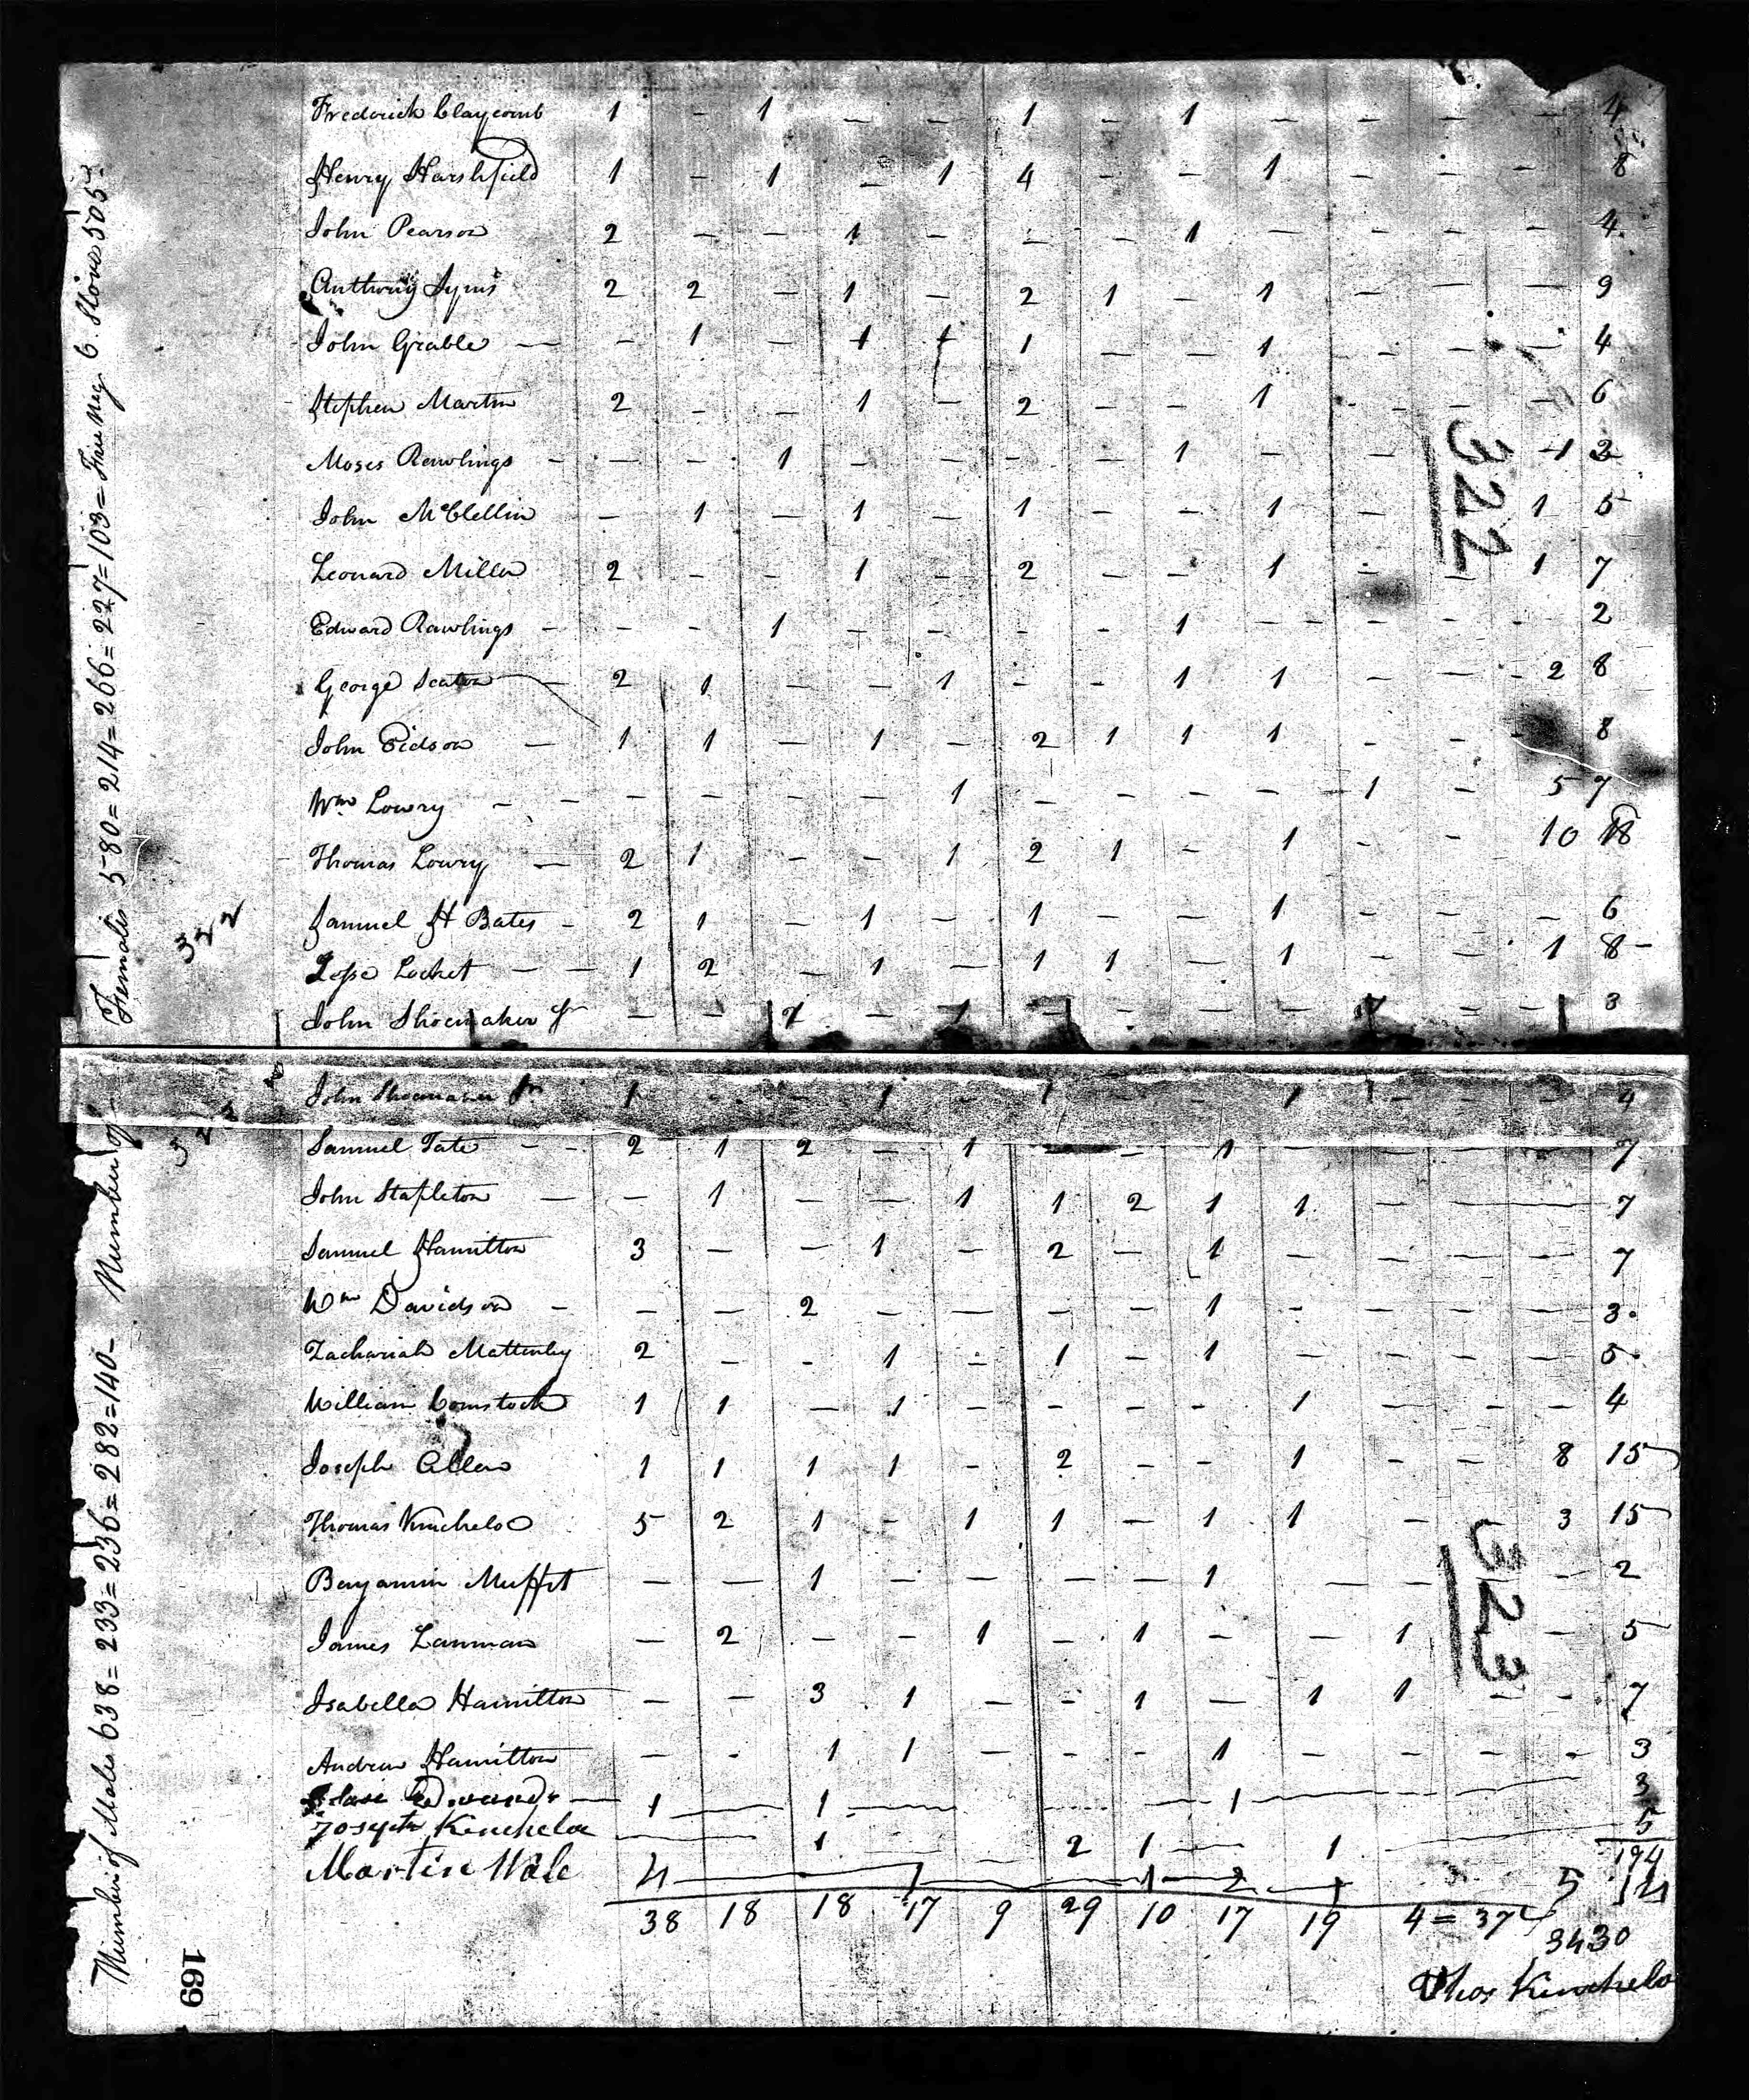 Frederick Claycomb 1 - 1 - - 1 - 1 - - - - 4
Henry Harshfield 1 - 1 - 1 4 - - 1 - - - 8
John Pearson 2 - - 1 - - - 1 - - - - 4
Anthony 2 2 - 1 - 2 1 - 1 - - - 9
John Grable - - 1 - 1 1 1 - - 1 - - - 4
Stephen Martin 2 - - 1 - 2 - - 1 - - - 6
Moses Rawlings - - - 1 - - - - 1 - - - 1
John McClellin - 1 - 1 - 1 - - 1 - - 1 5
Leonard Miller 2 - - 1 - 2 - - 1 - - 1 7
Edward Rawlings - - - 1 - - - - 1 - - - - 2
George Seaton - 2 1 - - 1 - - 1 1 - - 2 8
John Eidson - 1 1 - 1 - 2 1 1 1 - - - 8
Wm Lowry - - - - - - 1 - - - - 1 - 5 7
Thomas Lowry - 2 1 - - 1 2 1 - 1 - - 10 18
Samuel H Bates - 2 1 - 1 - 1 - - 1 - - - 6
Locket - - 1 2 - 1 - 1 1 - 1 - - 1 8 -
John Shoemaker - - - 1 - - - - - - 3
322
322
Females 580 = 214 = 266 = 227 = 103 = Free Neg. 6. Slaves 505
John Shoemaker Jr 1 - - 1 - 1 - - 1 - - - 4
Samuel Tate - - 2 1 2 - 1 - - 1 - - - - 7
John Stapleton - - 1 - - 1 1 2 1 1 - - 7
Samuel Hamilton 3 - - 1 - 2 - 1 - - - - 7
Wm Davidson - - - 2 - - - - 1 - - - - 3
Zachariah Mattenley 2 - - 1 - 1 - 1 - - - - 5
William Comstock 1 1 - 1 - - - - 1 - - - 4
Joseph Allen 1 1 1 1 - 2 - - 1 - - 8 15
Thomas Kincheloe 5 2 1 - 1 1 - 1 1 - 3 15
Benjamin Muffet - - 1 - - - - 1 - - - 2
James Lanman - 2 - - 1 - 1 - - 1 - 5
Isabella Hamilton - - 3 1 - - 1 - 1 1 - - 7
Andrew Hamilton - - 1 1 - - - 1 - - - - 3
1 1 1 3
Joseph Kincheloe 1 2 1 1 5
194
Martin 4 1 1 2 1 5 14
38 18 18 17 9 29 10 17 19 4 = 374
3430
Thos Kincheloe
323
Number of Males 638 = 233 = 236 = 282 = 140 - Number of
169